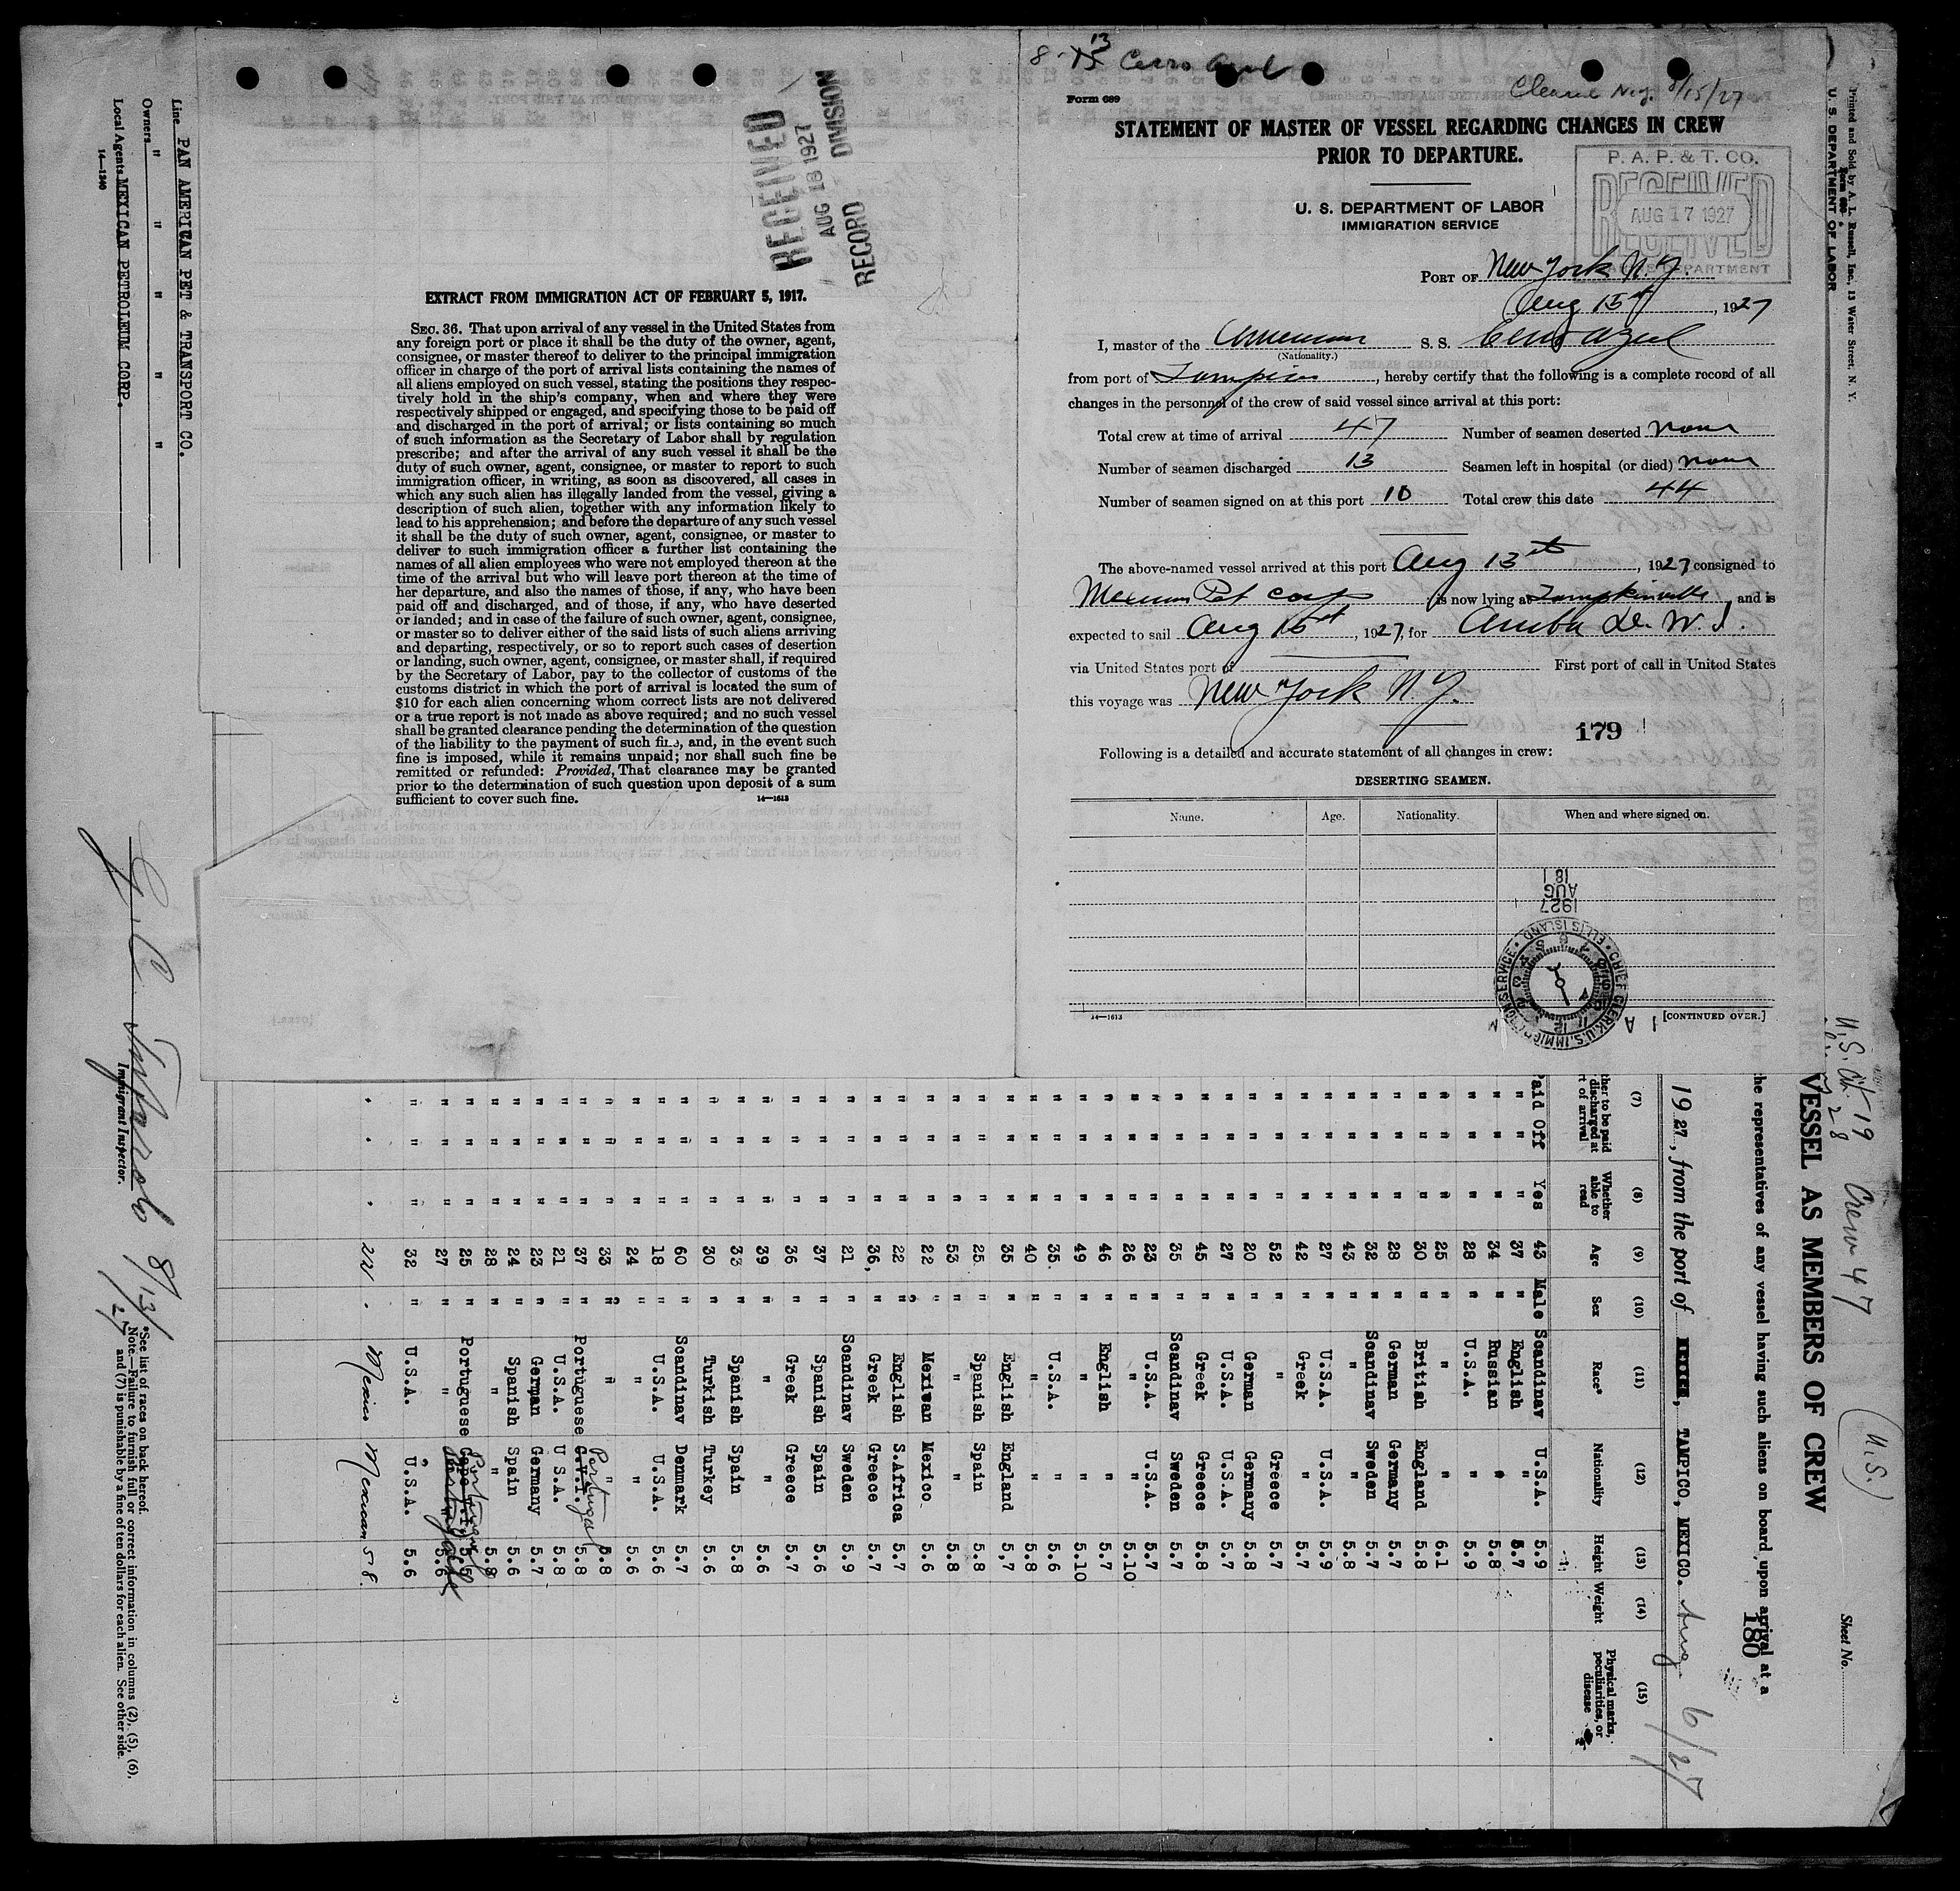 8-13 Cerro Azul
Cleared N.Y. 8/15/27
Form 689
STATEMENT OF MASTER OF VESSEL REGARDING CHANGES IN CREW
PRIOR TO DEPARTURE.
P. A. P. & T. CO.
RECEIVED
AUG 17 1927
DEPARTMENT
U. S. DEPARTMENT OF LABOR
IMMIGRATION SERVICE
PORT OF New York N.Y.
Aug 15th, 1927
I, master of the American S. S. Cerro Azul
(Nationality.)
from port of Tampico, hereby certify that the following is a complete record of all
changes in the personnel of the crew of said vessel since arrival at this port:
Total crew at time of arrival 47 Number of seamen deserted none
Number of seamen discharged 13 Seamen left in hospital (or died) none
Number of seamen signed on at this port 10 Total crew this date 44
The above-named vessel arrived at this port Aug 13th, 1927 consigned to
Mexican Pet Corp is now lying at Tompkinville and is
expected to sail Aug 15th, 1927, for Aruba D. W. I.
via United States port of First port of call in United States
this voyage was New York N.Y.
179
Following is a detailed and accurate statement of all changes in crew:
DESERTING SEAMEN.
Name. Age. Nationality. When and where signed on.
1927
AUG
18
CHIEF CLERK U.S. IMMIGRATION SERVICE • ELLIS ISLAND •
14—1613
[CONTINUED OVER.]
RECEIVED
AUG 18 1927
RECORD DIVISION
EXTRACT FROM IMMIGRATION ACT OF FEBRUARY 5, 1917.
SEC. 36. That upon arrival of any vessel in the United States from
any foreign port or place it shall be the duty of the owner, agent,
consignee, or master thereof to deliver to the principal immigration
officer in charge of the port of arrival lists containing the names of
all aliens employed on such vessel, stating the positions they respec-
tively hold in the ship's company, when and where they were
respectively shipped or engaged, and specifying those to be paid off
and discharged in the port of arrival; or lists containing so much
of such information as the Secretary of Labor shall by regulation
prescribe; and after the arrival of any such vessel it shall be the
duty of such owner, agent, consignee, or master to report to such
immigration officer, in writing, as soon as discovered, all cases in
which any such alien has illegally landed from the vessel, giving a
description of such alien, together with any information likely to
lead to his apprehension; and before the departure of any such vessel
it shall be the duty of such owner, agent, consignee, or master to
deliver to such immigration officer a further list containing the
names of all alien employees who were not employed thereon at the
time of the arrival but who will leave port thereon at the time of
her departure, and also the names of those, if any, who have been
paid off and discharged, and of those, if any, who have deserted
or landed; and in case of the failure of such owner, agent, consignee,
or master so to deliver either of the said lists of such aliens arriving
and departing, respectively, or so to report such cases of desertion
or landing, such owner, agent, consignee, or master shall, if required
by the Secretary of Labor, pay to the collector of customs of the
customs district in which the port of arrival is located the sum of
$10 for each alien concerning whom correct lists are not delivered
or a true report is not made as above required; and no such vessel
shall be granted clearance pending the determination of the question
of the liability to the payment of such fine, and, in the event such
fine is imposed, while it remains unpaid; nor shall such fine be
remitted or refunded: Provided, That clearance may be granted
prior to the determination of such question upon deposit of a sum
sufficient to cover such fine.
14—1613
Printed and Sold by A. L. Russell, Inc., 13 Water Street, N. Y.
Form 680
U. S. DEPARTMENT OF LABOR
U.S. Cit 19 Crew 47 (U.S.)
28
Sheet No.
VESSEL AS MEMBERS OF CREW
the representatives of any vessel having such aliens on board upon arrival at a
180
1927, from the port of TAMPICO, MEXICO. Aug 6/27
(7) (8) (9) (10) (11) (12) (13) (14) (15)
Whether able to read Age Sex Race* Nationality Height Weight Physical marks, peculiarities, or disease
Paid Off Yes 43 Male Scandinav U.S.A. 5.9
" " " 37 " English " 5.7
" " " 34 " Russian " 5.8
" " " 28 " U.S.A. " 5.9
" " " 25 " " " 6.1
" " " 30 " British England 5.8
" " " 28 " German Germany 5.7
" " " 32 " Scandinav Sweden 5.7
" " " 43 " " " 5.8
" " " 27 " U.S.A. U.S.A. 5.9
" " " 42 " Greek " 5.7
" " " 52 " " Greece 5.7
" " " 20 " German Germany 5.8
" " " 27 " U.S.A. U.S.A. 5.7
" " " 45 " Greek Greece 5.8
" " " 35 " Scandinav Sweden 5.7
" " " 23 " U.S.A. U.S.A. 5.7
" " " 26 " " " 5.10
" " " 46 " English " 5.7
" " " 49 " " " 5.10
" " " 35 " U.S.A. " 5.6
" " " 40 " " " 5.8
" " " 35 " English England 5,7
" " " 25 " Spanish Spain 5.8
" " " 53 " " " 5.8
" " " 22 " Mexican Mexico 5.6
" " " 22 " English S.Africa 5.7
" " " 36, " Greek Greece 5.7
" " " 21 " Scandinav Sweden 5.9
" " " 37 " Spanish Spain 5.6
" " " 36 " Greek Greece 5.7
" " " 39 " " " 5.6
" " " 33 " Spanish Spain 5.8
" " " 30 " Turkish Turkey 5.6
" " " 60 " Scandinav Denmark 5.7
" " " 18 " U.S.A. U.S.A. 5.6
" " " 24 " " " 5.6
" " " 33 " " " 5.8
" " " 37 " Portuguese C.V.I. Portugal 5.8
" " " 21 " U.S.A. U.S.A. 5.8
" " " 23 " German Germany 5.7
" " " 24 " Spanish Spain 5.6
" " " 28 " " " 5.8
" " " 25 " Portuguese Portugal 5.5
" " " 27 " " 5.6
" " " 32 " U.S.A. U.S.A. 5.6
22 Mexico Mexican 5 8.
Line PAN AMERICAN PET & TRANSPORT CO.
Owners " " " " "
Local Agents MEXICAN PETROLEUM CORP.
14—1240
8/13/27
Immigrant Inspector.
*See list of races on back hereof.
Note.—Failure to furnish full or correct information in columns (2), (5), (6),
and (7) is punishable by a fine of ten dollars for each alien. See other side.